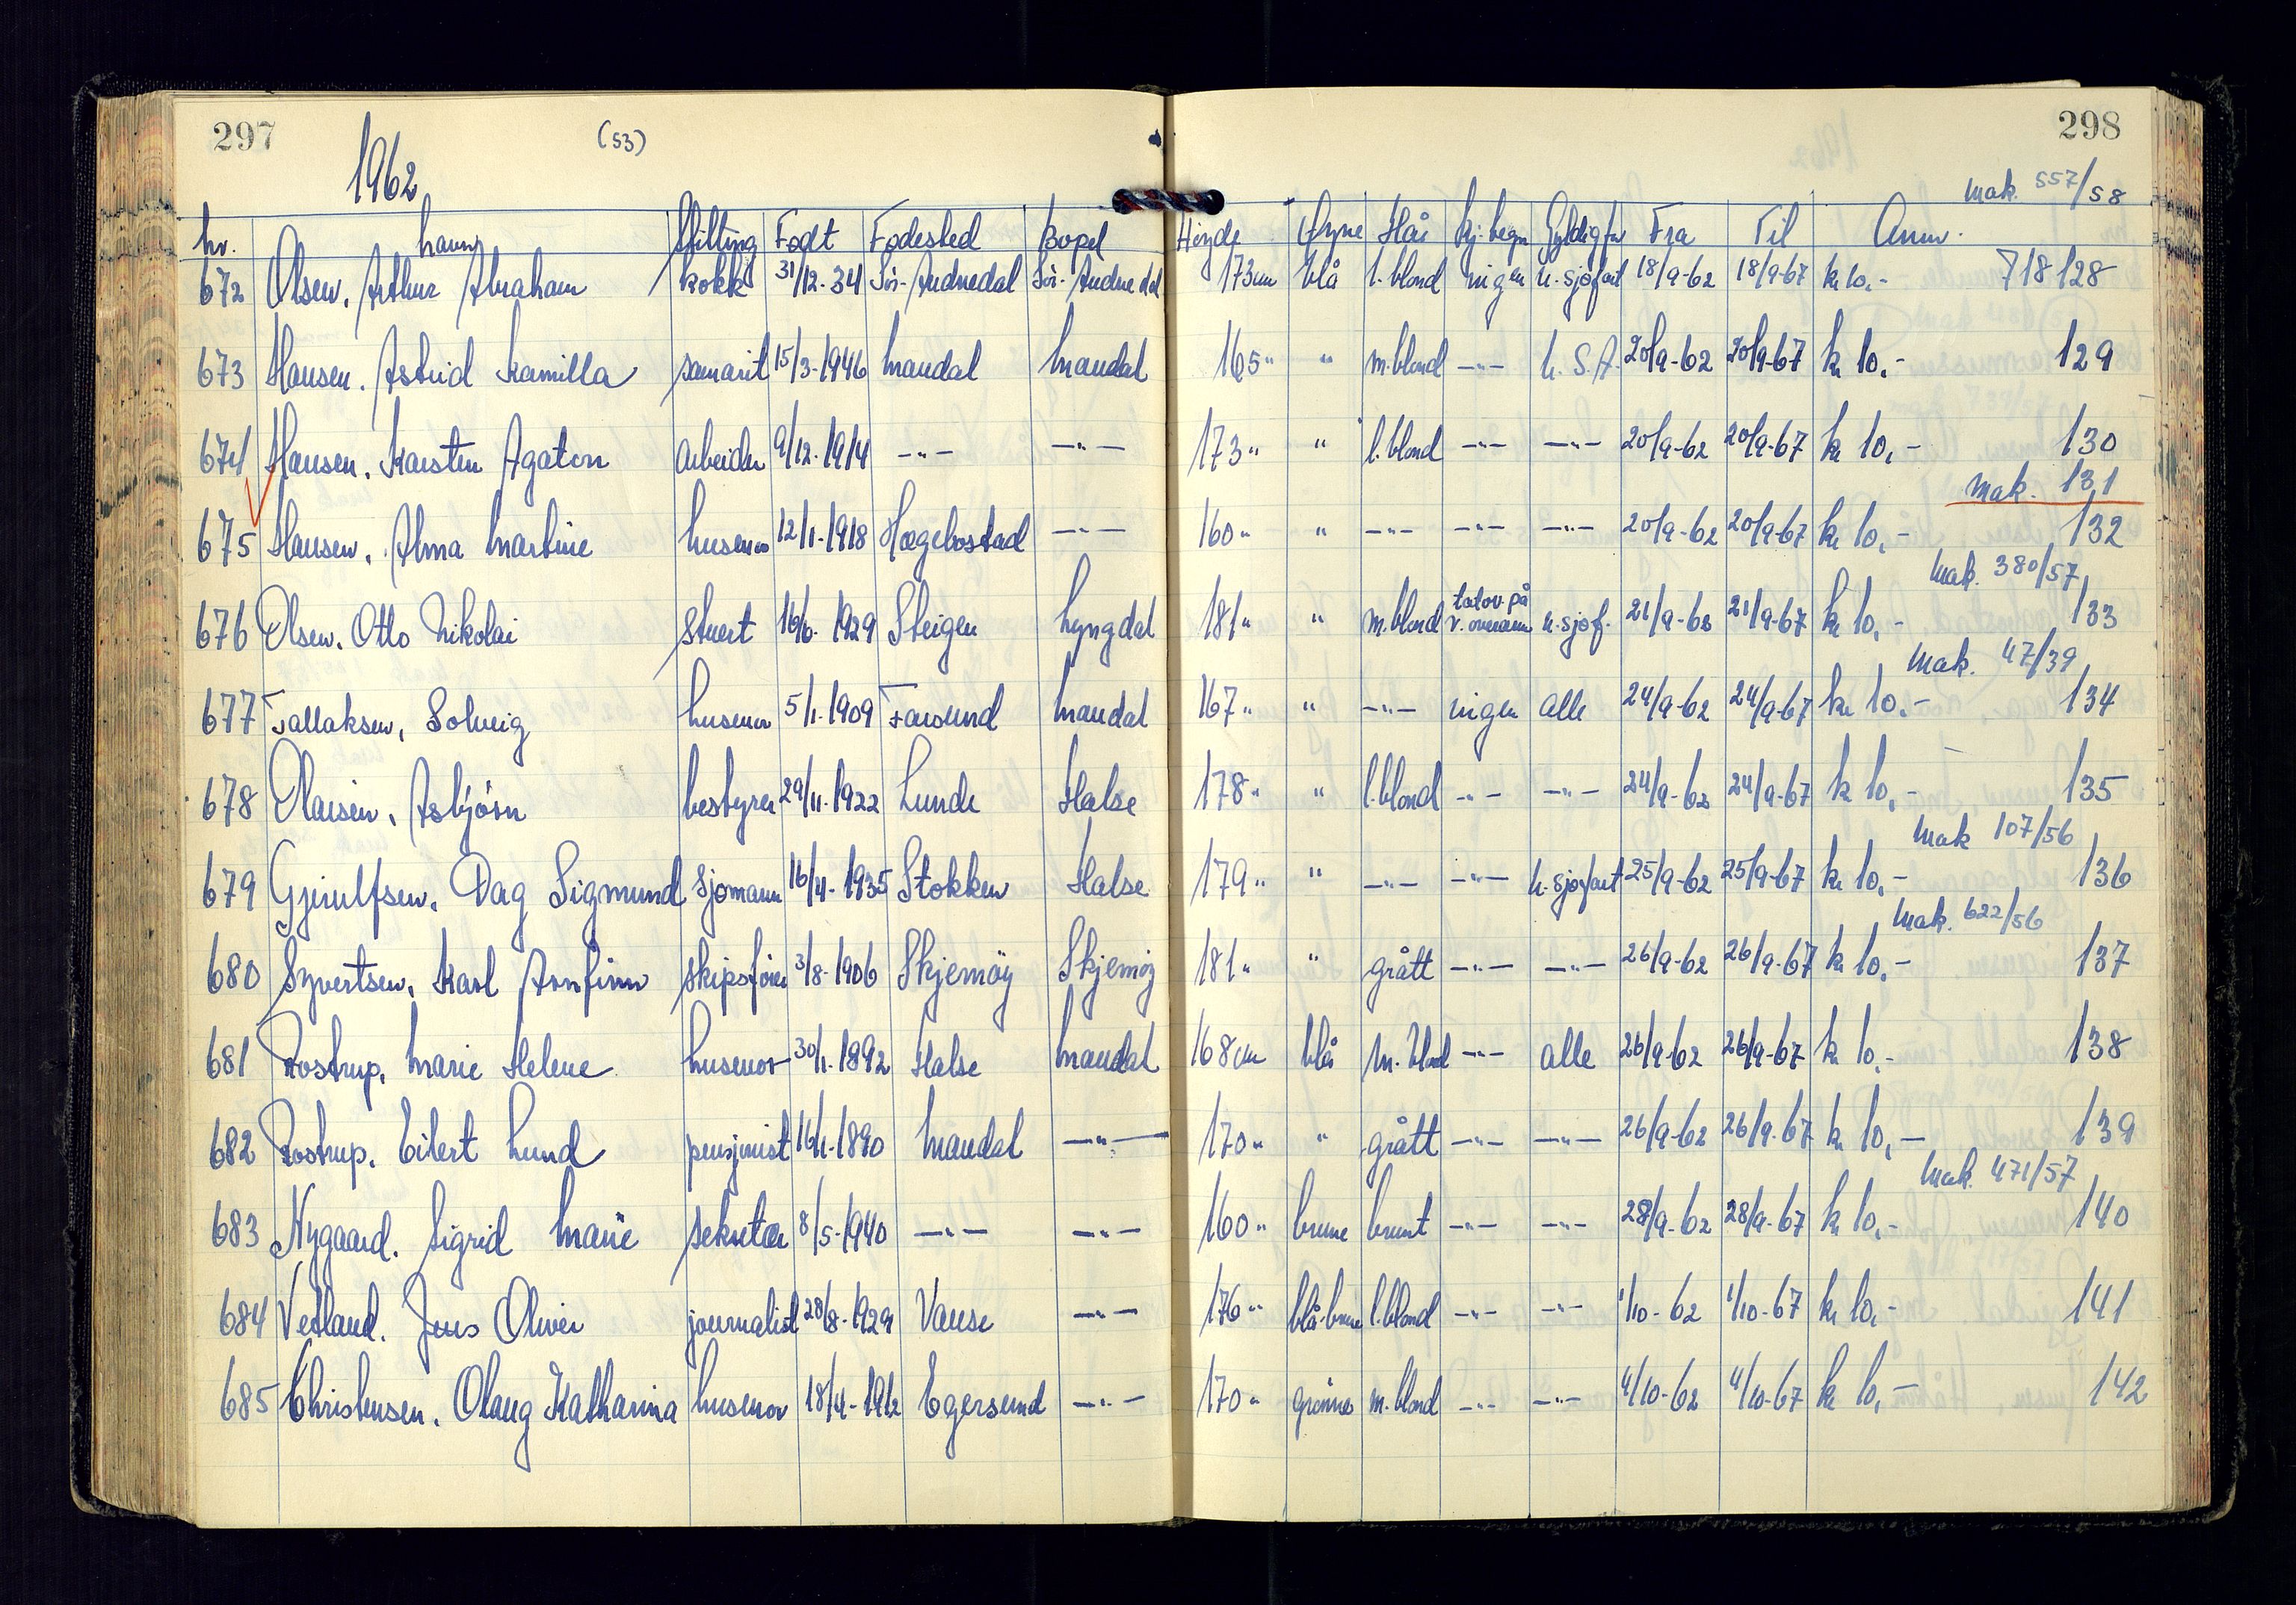 297
(53)
298
1962
mak. 557/58
nr. Navn Stilling Født Fødested Bopel Høyde Øyne Hår Kj. tegn Gyldig for Fra Til Anm.
672 Olsen, Arthur Abraham kokk 31/12-34 Sör-Audnedal Sör-Audnedal 173cm blå l. blond ingen u. sjøfart 18/9-62 18/9-67 kr 10,- 718128
673 Hansen, Astrid Kamilla samarit 15/3-1946 Mandal Mandal 165" " m. blond -"- U.S.A. 20/9-62 20/9-67 kr 10,- 129
674 Hansen, Karsten Agaton arbeider 9/12-1914 -"- -"- 173" " l. blond -"- -"- 20/9-62 20/9-67 kr 10,- 130
mak. 131
675 Hansen, Alma Martine husmor 12/1-1918 Hægebostad -"- 160" " -"- -"- -"- 20/9-62 20/9-67 kr 10,- 132
mak. 380/57
676 Olsen, Otto Nikolai stuert 16/6-1929 Steigen Lyngdal 181" " m. blond tatov. på v. overarm u. sjøf. 21/9-62 21/9-67 kr 10,- 133
mak. 47/39
677 Tallaksen, Solveig husmor 5/1-1909 Farsund Mandal 167" " -"- ingen alle 24/9-62 24/9-67 kr 10,- 134
678 Olaisen, Asbjörn bestyrer 29/11-1922 Lunde Halse 178" " l. blond -"- -"- 24/9-62 24/9-67 kr 10,- 135
mak 107/56
679 Gjerulfsen, Dag Sigmund sjømann 16/4-1935 Stokken Halse 179" " -"- -"- u. sjøfart 25/9-62 25/9-67 kr 10,- 136
mak. 622/56
680 Syvertsen, Karl Arnfinn skipsfører 3/8-1906 Skjernöy Skjernöy 181" " grått -"- -"- 26/9-62 26/9-67 kr 10,- 137
681 Rostrup, Marie Helene husmor 30/1-1892 Halse Mandal 168cm blå m. blond -"- alle 26/9-62 26/9-67 kr 10,- 138
682 Rostrup, Eilert Lund pensjonist 16/1-1890 Mandal -"- 170" " grått -"- -"- 26/9-62 26/9-67 kr 10,- 139
mak. 471/57
683 Nygaard, Sigrid Marie sekretær 8/5-1940 -"- -"- 160" brune brunt -"- -"- 28/9-62 28/9-67 kr 10,- 140
684 Vetland, Jens Oliver journalist 28/8-1929 Vanse -"- 176" blå-brune l. blond -"- -"- 1/10-62 1/10-67 kr 10,- 141
685 Christensen, Olaug Katharina husmor 18/4-1912 Egersund -"- 170" grönne m. blond -"- -"- 4/10-62 4/10-67 kr 10,- 142